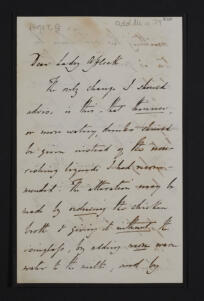 Dear Lady Affleck
The only change I should
advise is this. that thinner,
or more watery, drinks should
be given instead of the nou-
rishing liquids I had recom-
mended. The alteration may be
made by reducing the chicken
broth & giving it without the
isinglass, by adding more warm
water to the milk, and by